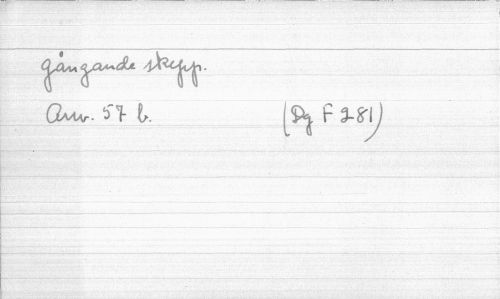 gångande skepp.
Anv. 57 b. (Dg F 281)